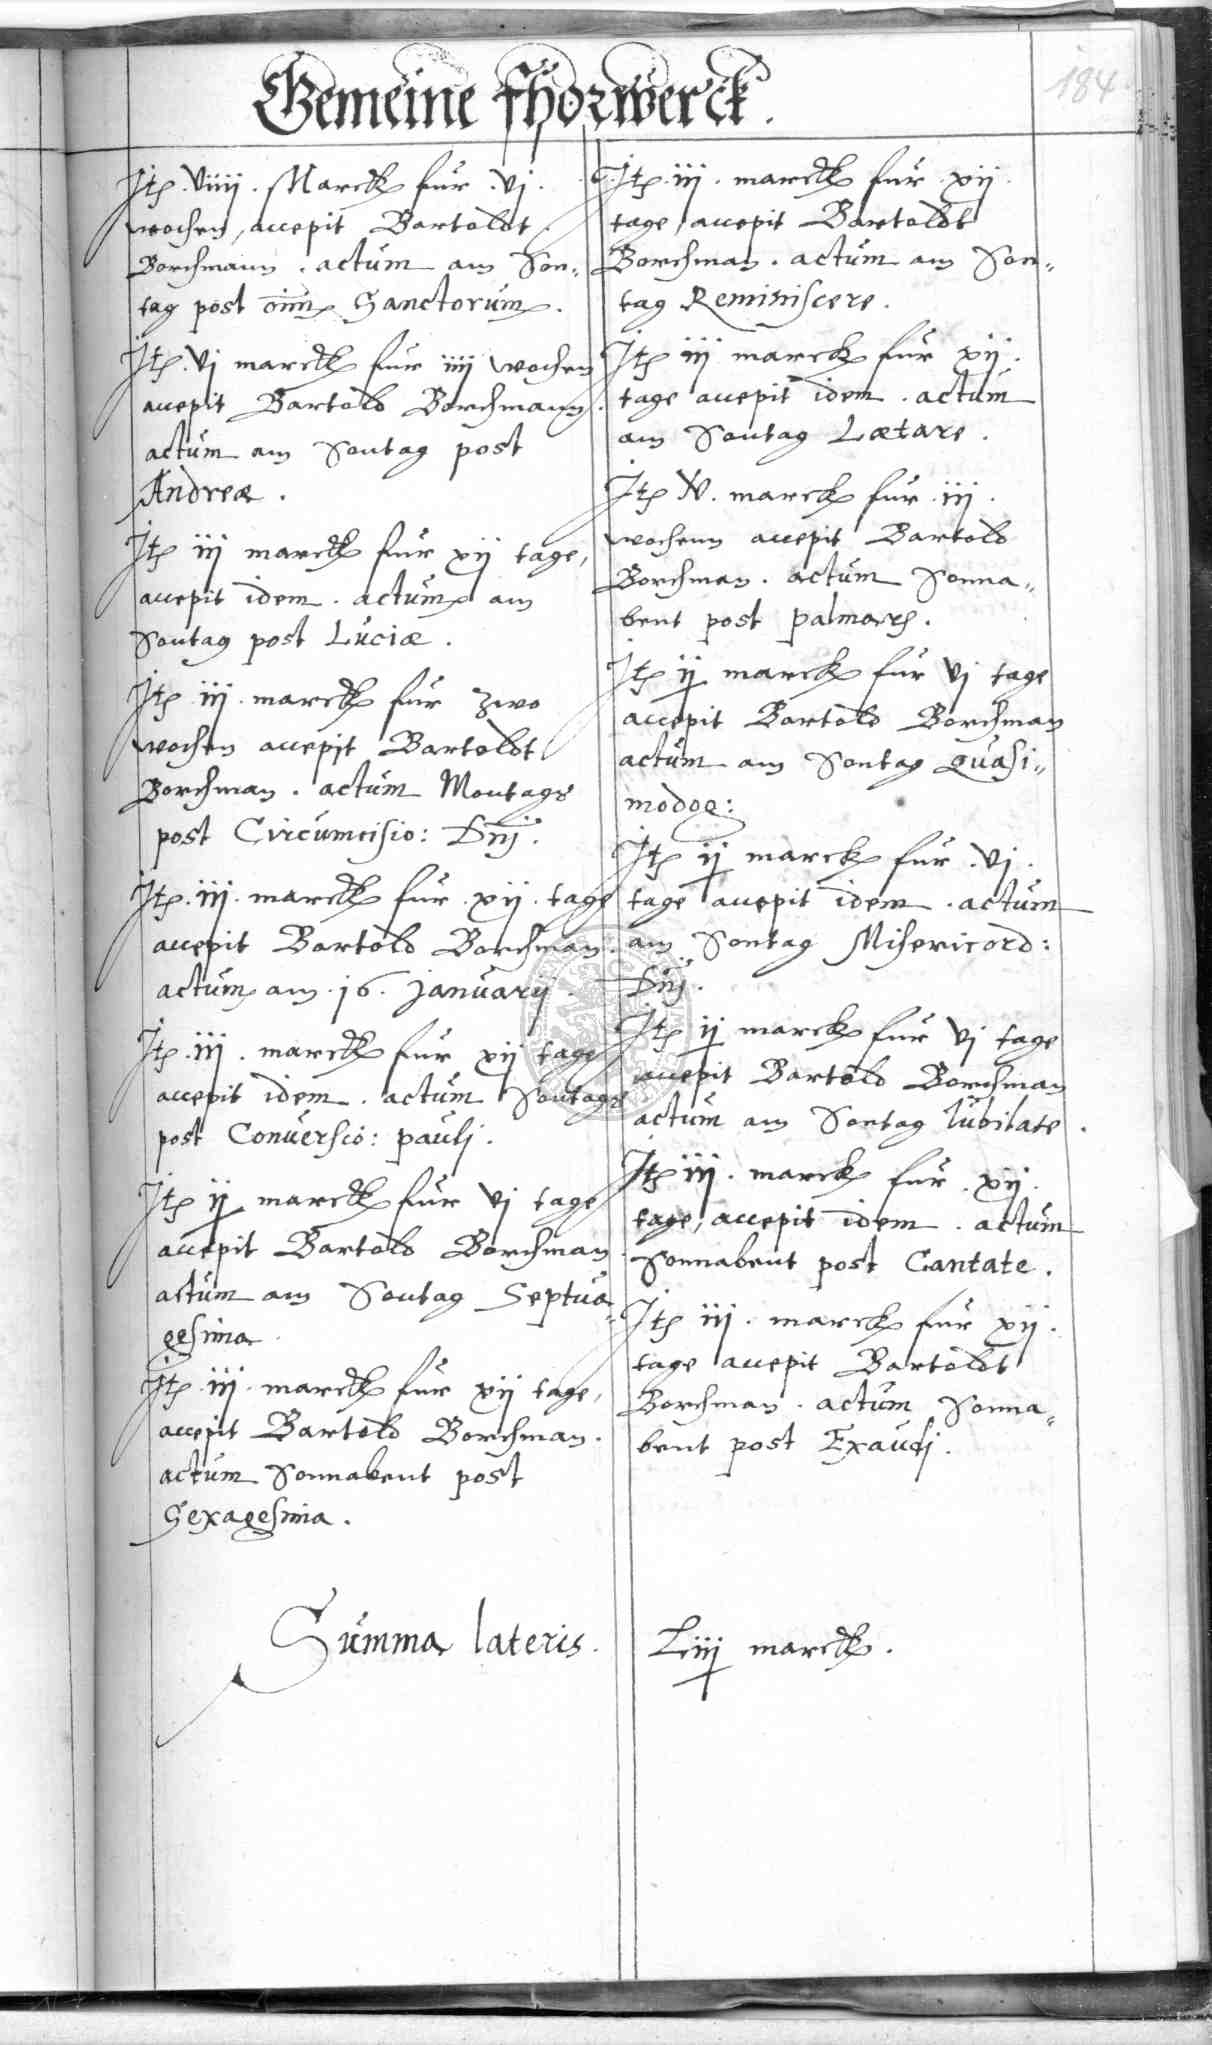 184
Gemeine fhorwerck.
Itẽ. viiij. Marck fur .vj.
wochen, accepit Bartoldt
Borchmann. actum am Son„
tag post oĩm Sanctorum.
Itẽ. vj marck fur iiij wochen
accepit Bartold Borchmann.
actum am Sontag post
Andreæ.
Itẽ iij marck fur xij tage,
accepit idem. actum am
Sontag post Luciæ.
Itẽ .iij. marck fur zwo
wochen accepit Bartoldt
Borchman. actum Montags
post Circumcisio: Dnj.
Itẽ. iij. marck fur .xij. tage
accepit Bartold Borchman.
actum am .16. Januarij.
Itẽ. iij. marck fur xij tage
accepit idem. actum Sontags
post Conuersio: paulj.
Itẽ ij marck fur vj tage
accepit Bartold Borchman
actum am Sontag Septua„
gesima
Itẽ .iij. marck fur xij tage,
accepit Bartold Borchman.
actum Sonnabent post
Sexagesima.
Itẽ. iij. marck fur xij.
tage, accepit Bartoldt
Borchman. actum am Son„
tag Reminiscere.
Itẽ iij marck fur xij.
tage accepit idem. actum
am Sontag Lætare.
Itẽ V. marck fur .iij.
wochenn accepit Bartold
Borchman. actum Sonna„
bent post palmarũ.
Itẽ ij marck fur vj tage
accepit Bartold Borchman
actum am Sontag Quasi„
modog:
Itẽ ij marck fur .vj.
tage accepit idem. actum
am Sontag Misericord:
Dnj.
Itẽ ij marck fur vj tage
accepit Bartold Borchman
actum am Sontag Iubilate.
Itẽ iij. marck fur .xij.
tage, accepit idem. actum
Sonnabent post Cantate.
Itẽ iij. marck fur xij.
tage accepit Bartoldt
Borchman. actum Sonna„
bent post Exaudj.
Summa lateris. Liiij marck.